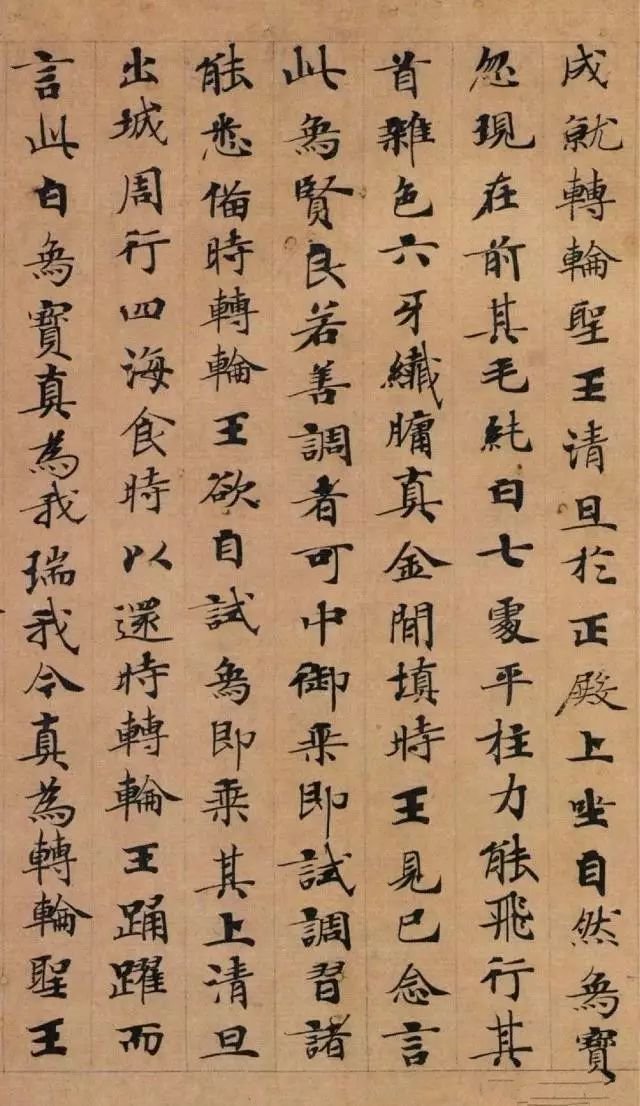 成就轉輪聖王清旦於正殿上坐自然為寶
忽現在前其毛純白七處平柱力能飛行其
首雜色六牙纖𦟛真金間填時王見已念言
此為賢良若善調者可中御乗即試調習諸
能悉俻時轉輪王欲自試為即乗其上清旦
出城周行四海食時以還時轉輪王踊躍而
言此白為寶真為我瑞我今真為轉輪聖王